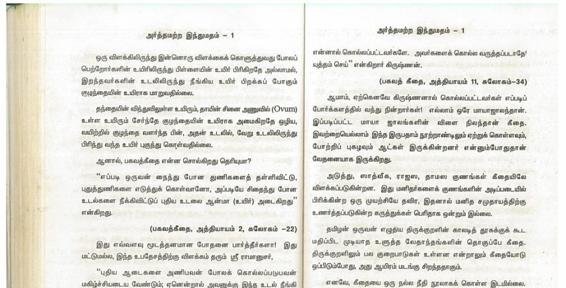 அர்த்தமற்ற இந்துமதம் – 1
ஒரு விளக்கிலிருந்து இன்னொரு விளக்கைக் கொளுத்துவது போலப்
பெற்றோர்களின் உயிரிலிருந்து பிள்ளையின் உயிர் பிரிகிறதே அல்லாமல்,
இறந்தவர்களின் உடலிலிருந்து நீங்கிய உயிர் பிறக்கப் போகும்
குழந்தையின் உயிராக மாறுவதில்லை.
தந்தையின் விந்துவிலுள்ள உயிரும், தாயின் சினை அணுவில் (Ovum)
உள்ள உயிரும் சேர்ந்தே குழந்தையின் உயிராக அமைகிறதே ஒழிய,
வயிற்றில் குழந்தை வளர்ந்த பின், அதன் உடலில், வேறு உடலிலிருந்து
பிரிந்து வந்த உயிர் புகுந்து கொள்வதில்லை.
ஆனால், பகவத்கீதை என்ன சொல்கிறது தெரியுமா?
"எப்படி ஒருவன் நைந்து போன துணிகளைத் தள்ளிவிட்டு,
புதுத்துணிகளை எடுத்துக் கொள்வானோ, அப்படியே சிதைந்து போன
உடல்களை நீக்கிவிட்டுப் புதிய உடலை ஆன்மா (உயிர்) அடைகிறது"
என்கிறது.
(பகவத்கீதை, அத்தியாயம் 2, சுலோகம் –22)
இது எவ்வளவு மூடத்தனமான போதனை பார்த்தீர்களா! இது
மட்டுமல்ல, இந்த உபதேசத்திற்கு விளக்கம் தரும் ஸ்ரீ ராமானுஜர்,
"புதிய ஆடைகளை அணிபவன் போலக் கொல்லப்படுபவன்
மகிழ்ச்சியடைய வேண்டும்; ஏனென்றால் அவனுக்கு இந்த உடல் நீங்கி
அர்த்தமற்ற இந்துமதம் – 1
என்னால் கொல்லப்பட்டவர்களே. அவர்களைக் கொல்ல வருத்தப்படாதே!
யுத்தம் செய்" என்கிறார் கிருஷ்ணன்.
(பகவத் கீதை, அத்தியாயம் 11, சுலோகம்–34)
ஆமாம், ஏற்கெனவே கிருஷ்ணனால் கொல்லப்பட்டவர்கள் எப்படிப்
போர்க்களத்தில் வந்து நின்றார்கள்! எல்லாம் ஒரே மாயாஜாலந்தான்.
இப்படிப்பட்ட மாயா ஜாலங்களின் விளை நிலந்தான் கீதை.
இவற்றையெல்லாம் இந்த இருபதாம் நூற்றாண்டிலும் ஏற்றுக் கொள்ளவும்,
போற்றிப் புகழவும் ஆட்கள் இருக்கின்றனர் என்னும்போதுதான்
வேதனையாக இருக்கிறது.
அடுத்து, ஸாத்வீக, ராஜஸ, தாமஸ குணங்கள் கீதையிலே
விளக்கப்படுகின்றன. இது மனிதர்களைக் குணங்களின் அடிப்படையில்
பிரிக்கின்ற ஒரு முயற்சியே தவிர, இதனால் மனித சமுதாயத்திற்கு
உணர்த்தப்படுகின்ற கருத்துக்கள் பெரிதாக ஒன்றும் இல்லை.
தமிழன் ஒருவன் எழுதிய திருக்குறளின் காலடித் தூசுக்குக் கூட
மதிப்பிட முடியாத உளுத்த வேதாந்தங்களின் தொகுப்பே கீதை.
திருக்குறளிலும் பல குறைபாடுகள் உள்ளன என்றாலும் கீதையோடு
ஒப்பிடும்போது, அது ஆயிரம் மடங்கு சிறந்ததாகும்.
எனவே, கீதையை ஒரு நல்ல நீதி நூலாகக் கொள்ள இடமில்லை.